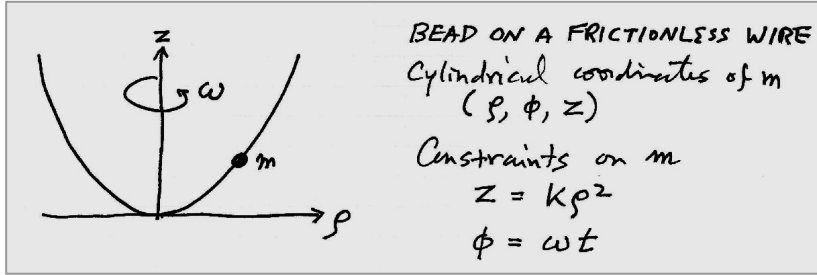 z
ω
m
ρ
BEAD ON A FRICTIONLESS WIRE
Cylindrical coordinates of m
(ρ, φ, z)
Constraints on m
z = kρ²
φ = ωt